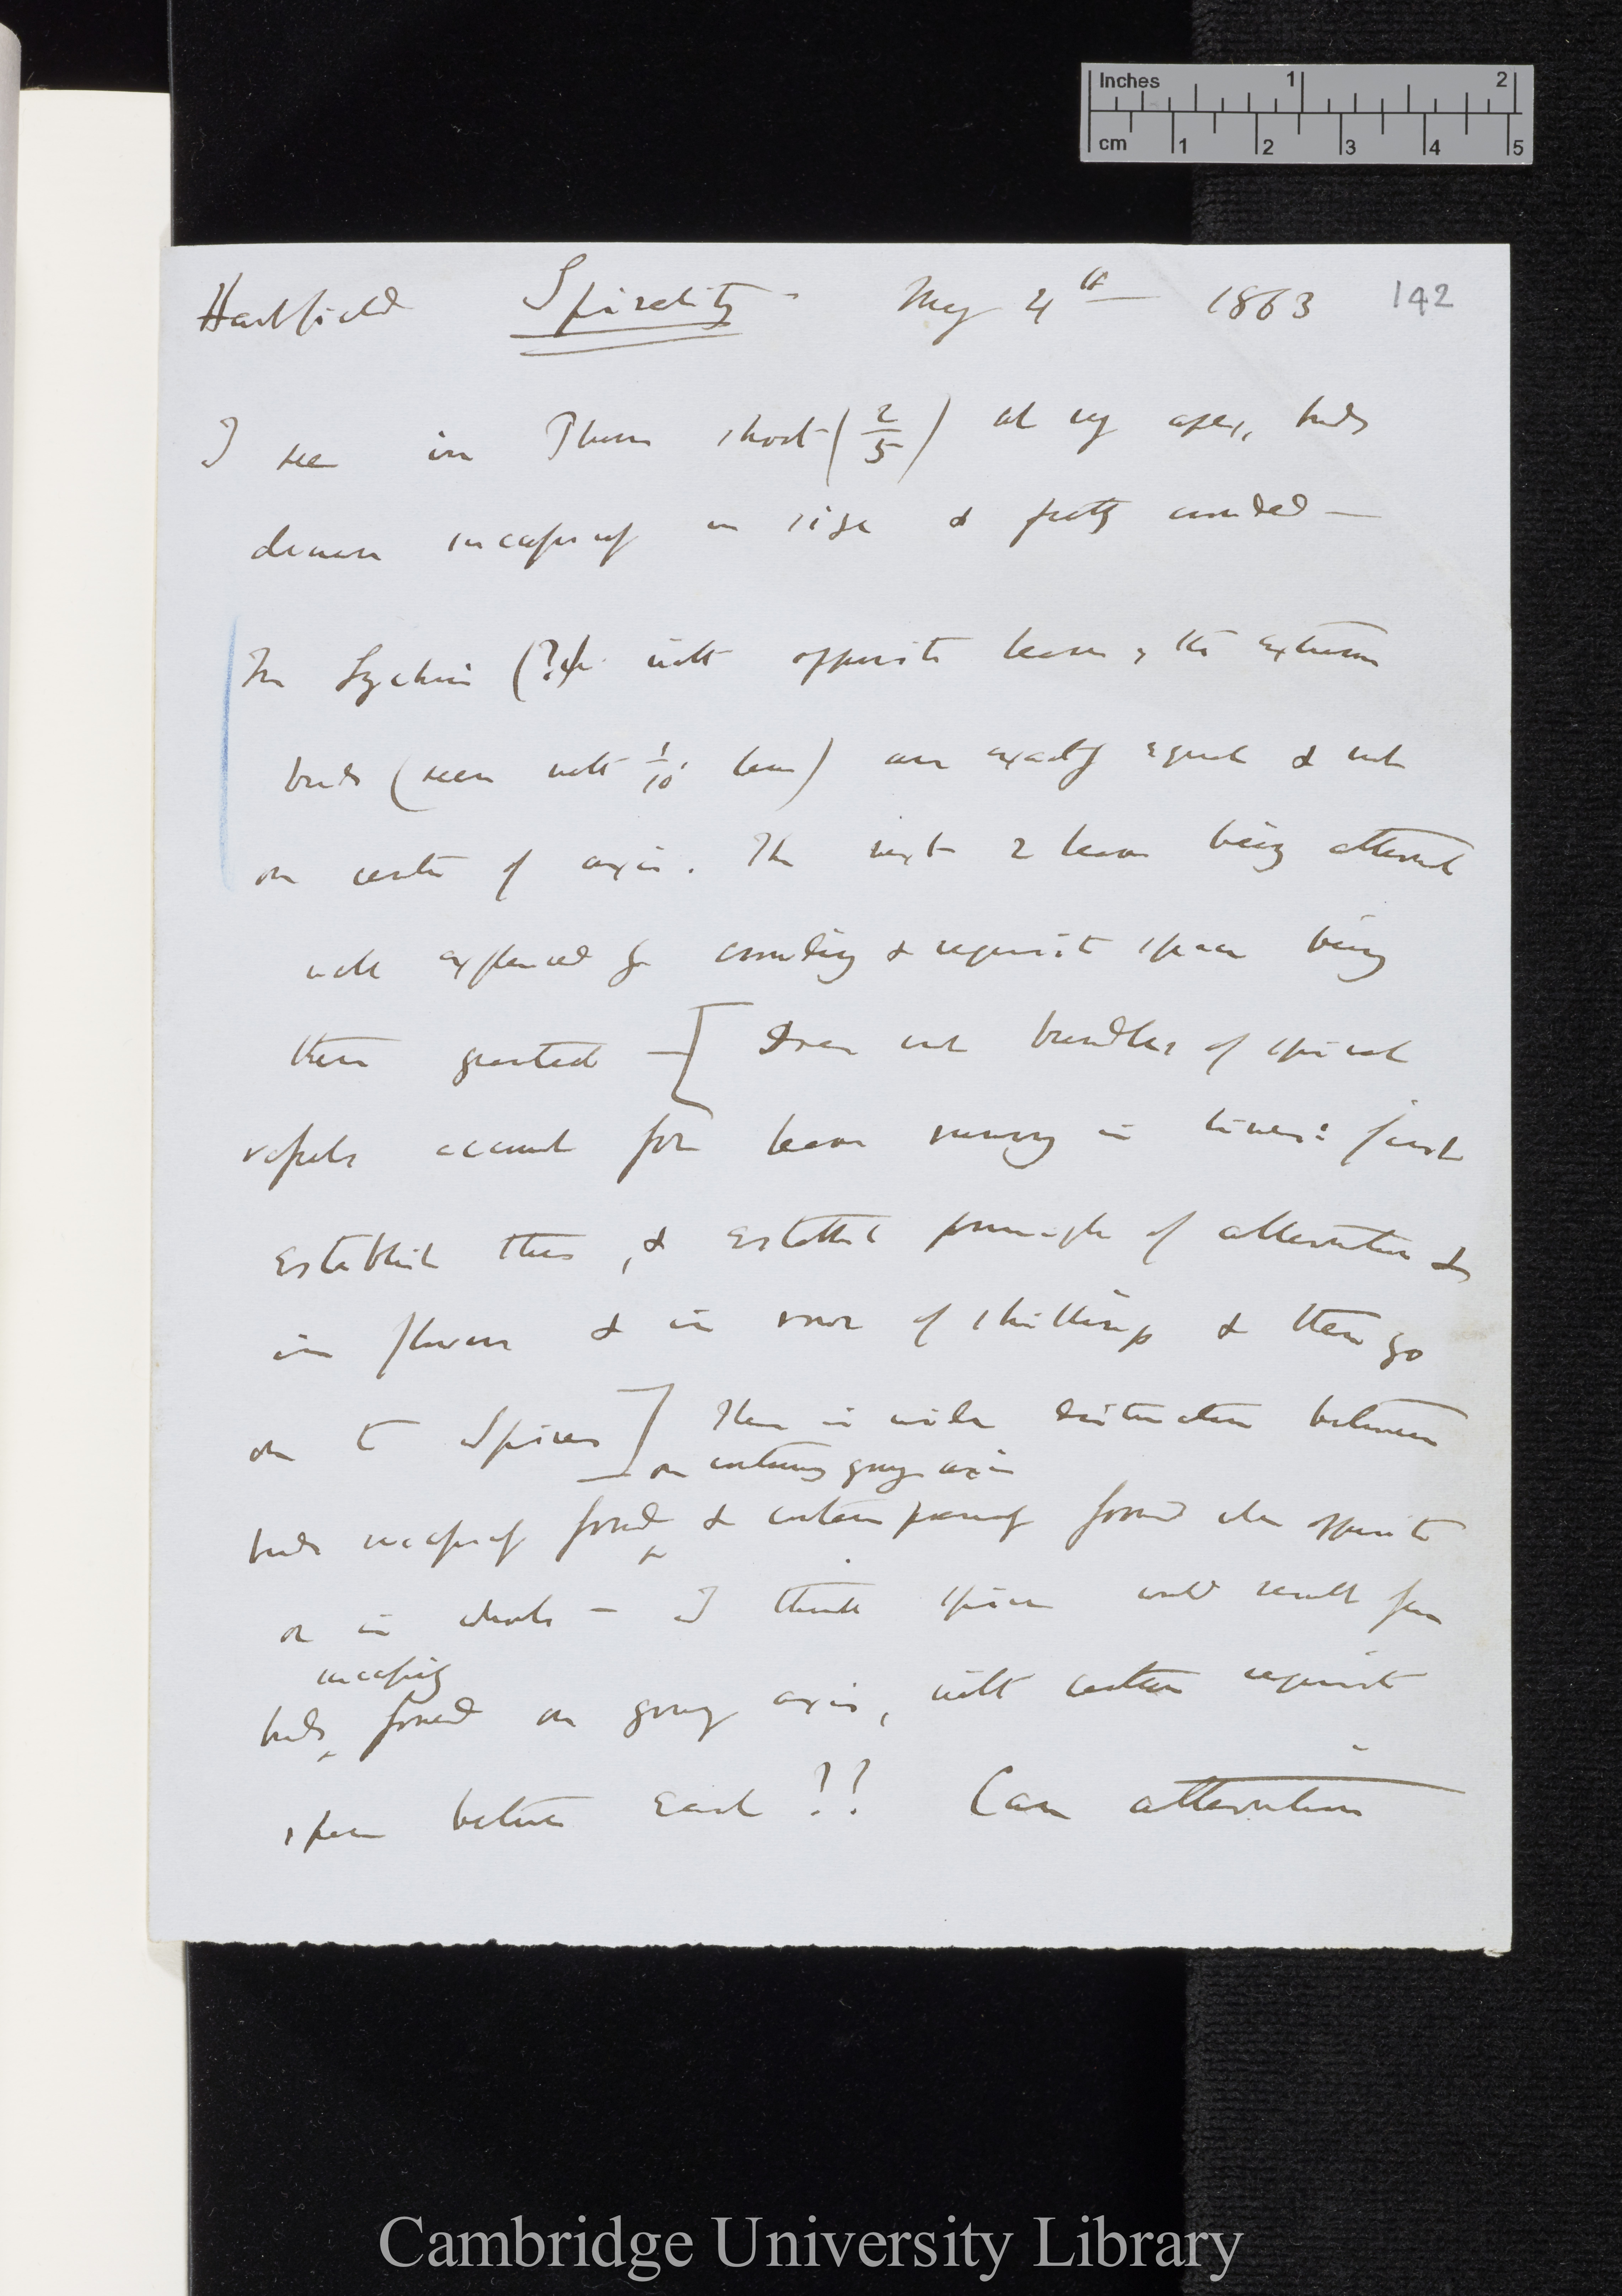 Inches 1 2
cm 1 2 3 4 5
Hartfield Spirality May 4th 1863 142
I see in Plum shoot (2/5) at very apex, buds
decrease successively in size & pretty crowded —
In Lychnis (?) with opposite leaves, the extreme
buds (seen with 1/10 lens) are exactly equal & not
on centre of axis. The next 2 leaves being alternate
well explained by crowding & requisite space being
then granted — [Draw out bundles of spiral
vessels account for leaves running in lines: first
establish this, & establish principle of alternation &
in flowers & in rows of shillings & then go
on to Spires] There is wide distinction between
on continuously growing axis
buds successively formed & contemporaneously formed when opposite
or in whorls — I think spire would result from
successively
buds formed on growing axis, with certain requisite
space between each !! Can alternation
Cambridge University Library